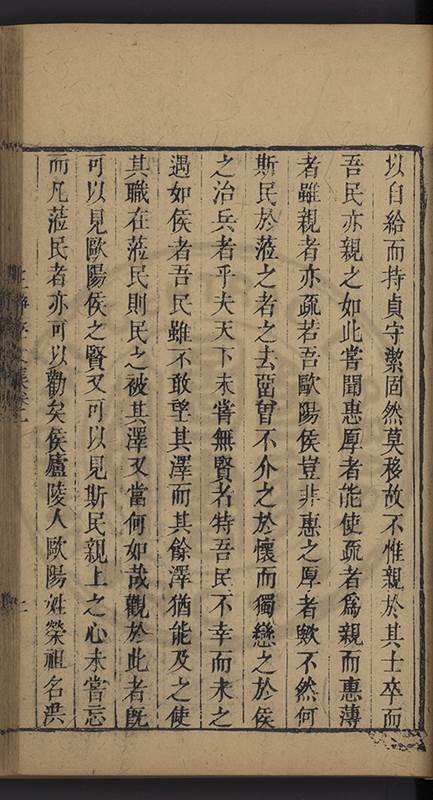 以自給而持貞守潔固然莫移故不惟親於其士卒而
吾民亦親之如此嘗聞惠厚者能使疏者為親而惠薄
者雖親者亦疏若吾歐陽侯豈非惠之厚者歟不然何
斯民於蒞之者之去留曾不介之於懷而獨戀之於侯
之治兵者乎夫天下未嘗無賢者特吾民不幸而未之
遇如侯者吾民雖不敢望其澤而其餘澤猶能及之使
其職在蒞民則民之被其澤又當何如哉觀於此者旣
可以見歐陽侯之賢又可以見斯民親上之心未嘗忘
而凡蒞民者亦可以勸矣侯廬陵人歐陽姓榮祖名洪